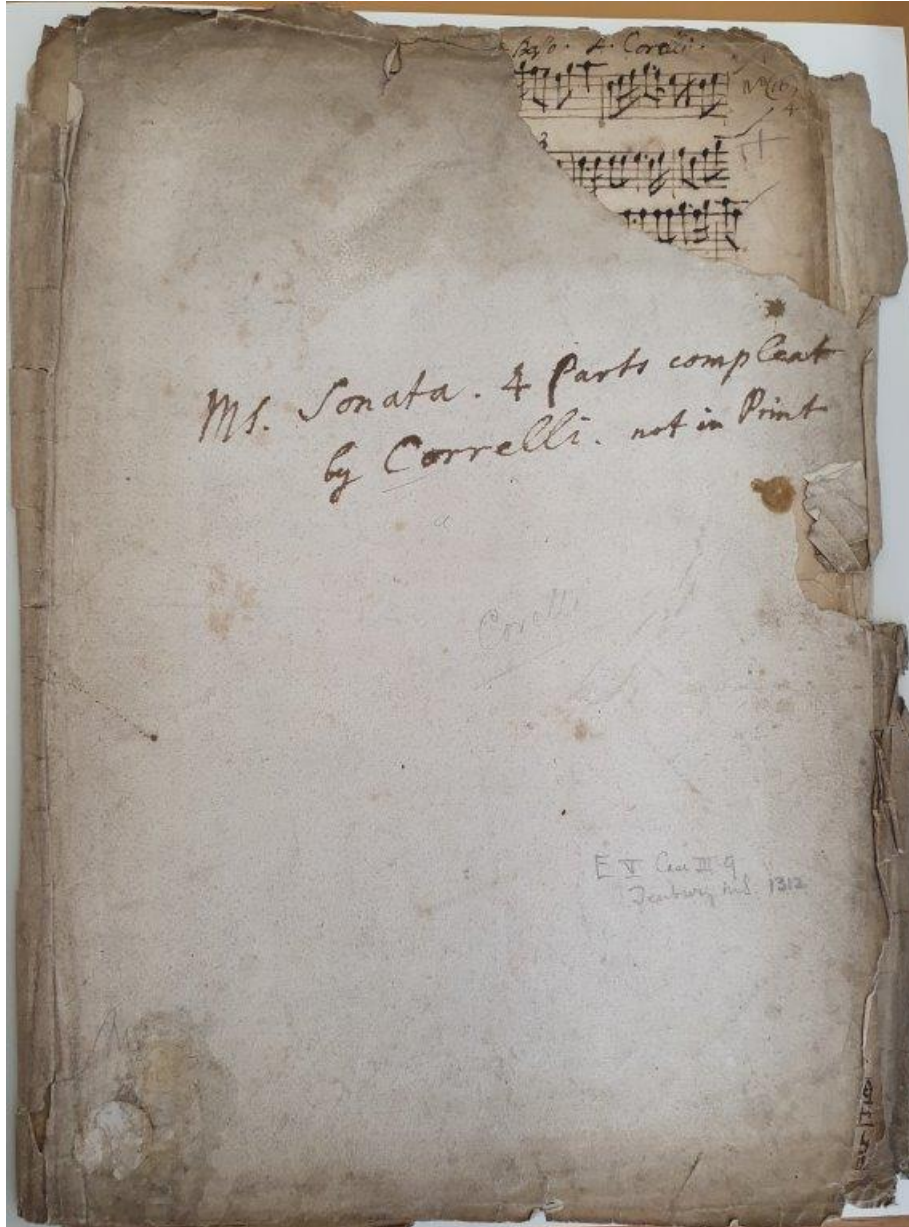 A. Corelli.
3
Ms. Sonata. 4 Parts compleat
by Correlli. not in Print
Corelli
E V Case III 9
Tenbury MS. 1312